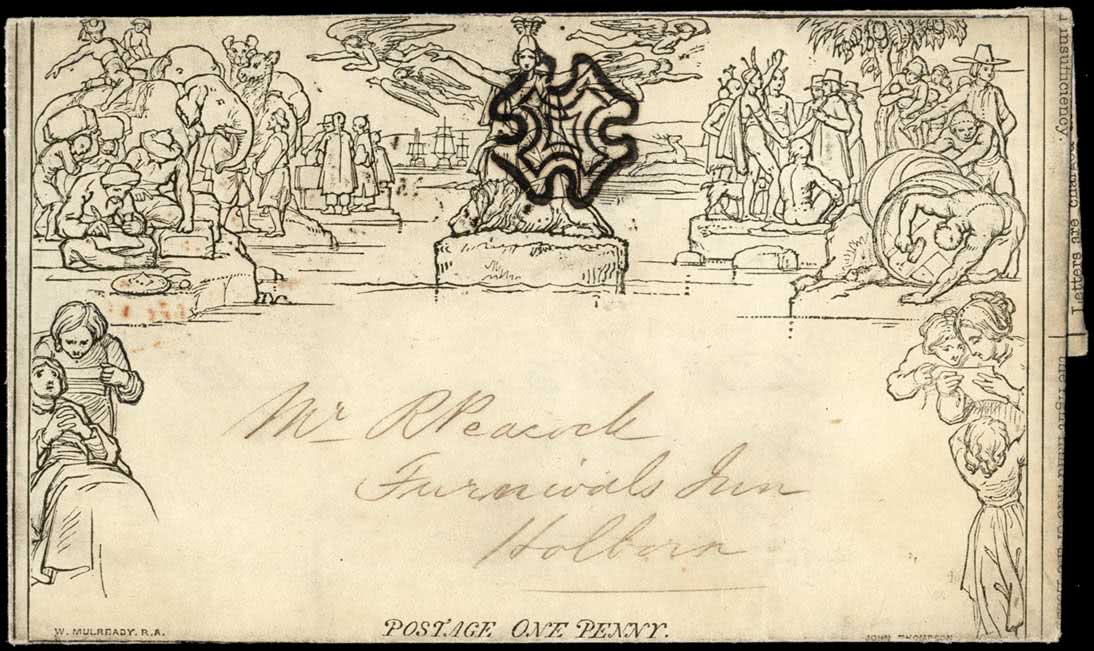 Mr R Peacock
Furnivals Inn
Holborn
W. MULREADY. R.A.
POSTAGE ONE PENNY.
JOHN THOMPSON
insufficiency.
Letters are